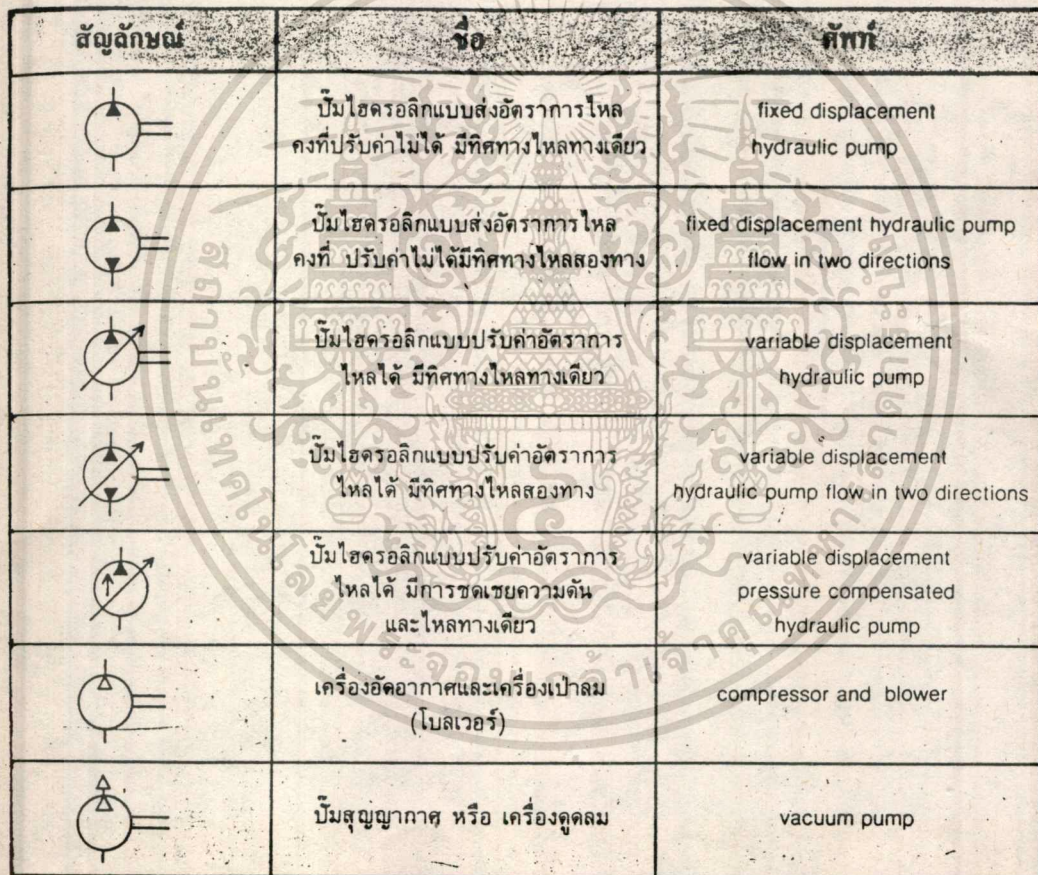 สัญลักษณ์ ชื่อ ศัพท์
ปั๊มไฮดรอลิกแบบส่งอัตราการไหล
คงที่ปรับค่าไม่ได้ มีทิศทางไหลทางเดียว
fixed displacement
hydraulic pump
ปั๊มไฮดรอลิกแบบส่งอัตราการไหล
คงที่ ปรับค่าไม่ได้มีทิศทางไหลสองทาง
fixed displacement hydraulic pump
flow in two directions
ปั๊มไฮดรอลิกแบบปรับค่าอัตราการ
ไหลได้ มีทิศทางไหลทางเดียว
variable displacement
hydraulic pump
ปั๊มไฮดรอลิกแบบปรับค่าอัตราการ
ไหลได้ มีทิศทางไหลสองทาง
variable displacement
hydraulic pump flow in two directions
ปั๊มไฮดรอลิกแบบปรับค่าอัตราการ
ไหลได้ มีการชดเชยความดัน
และไหลทางเดียว
variable displacement
pressure compensated
hydraulic pump
เครื่องอัดอากาศและเครื่องเป่าลม
(โบลเวอร์)
compressor and blower
ปั๊มสุญญากาศ หรือ เครื่องดูดลม
vacuum pump
สถาบันเทคโนโลยีพระจอมเกล้าเจ้าคุณทหารลาดกระบัง